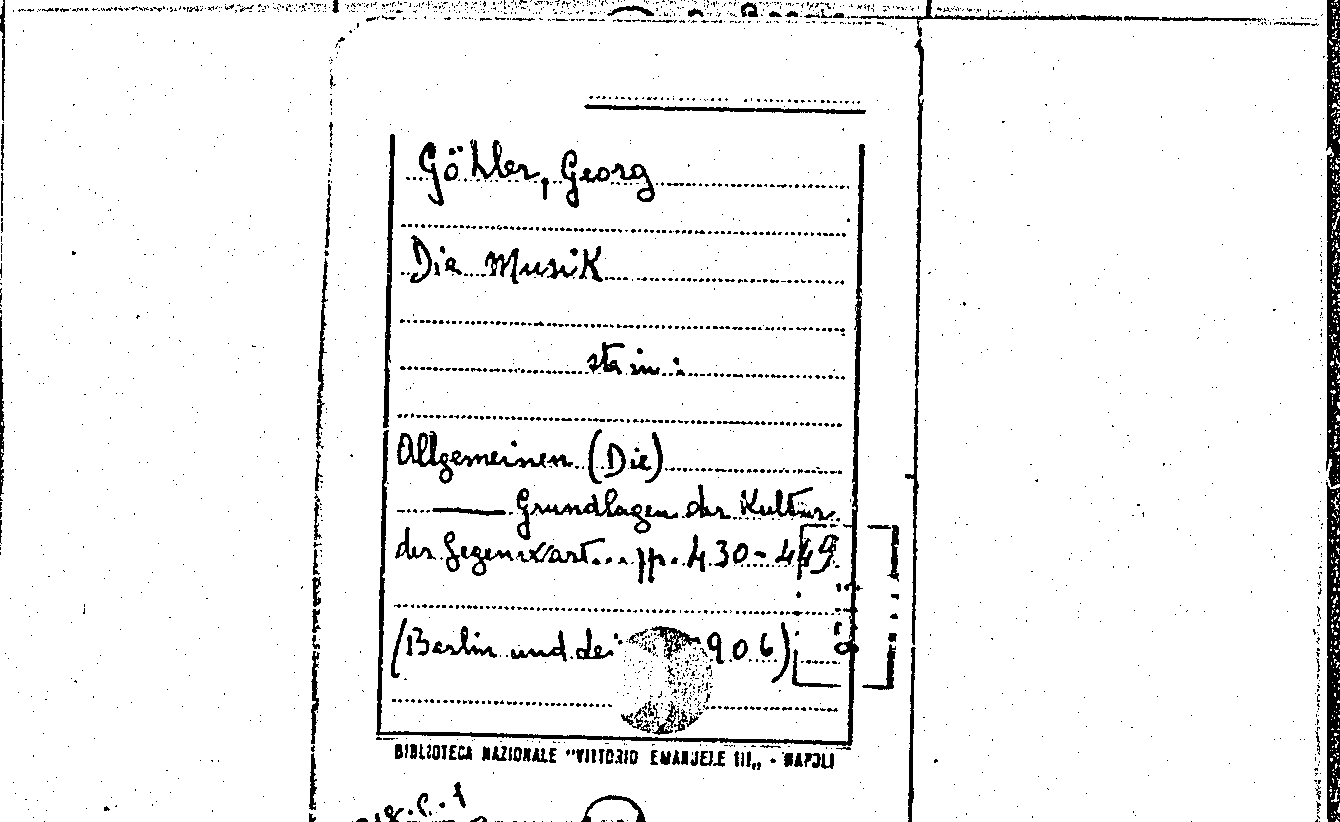 Göhler, Georg
Die Musik
sta in:
Allgemeinen (Die)
——— Grundlagen der Kultur
der Gegenwart... pp. 430-449
(Berlin und 906)
BIBLIOTECA NAZIONALE "VITTORIO EMANUELE III„ - NAPOLI